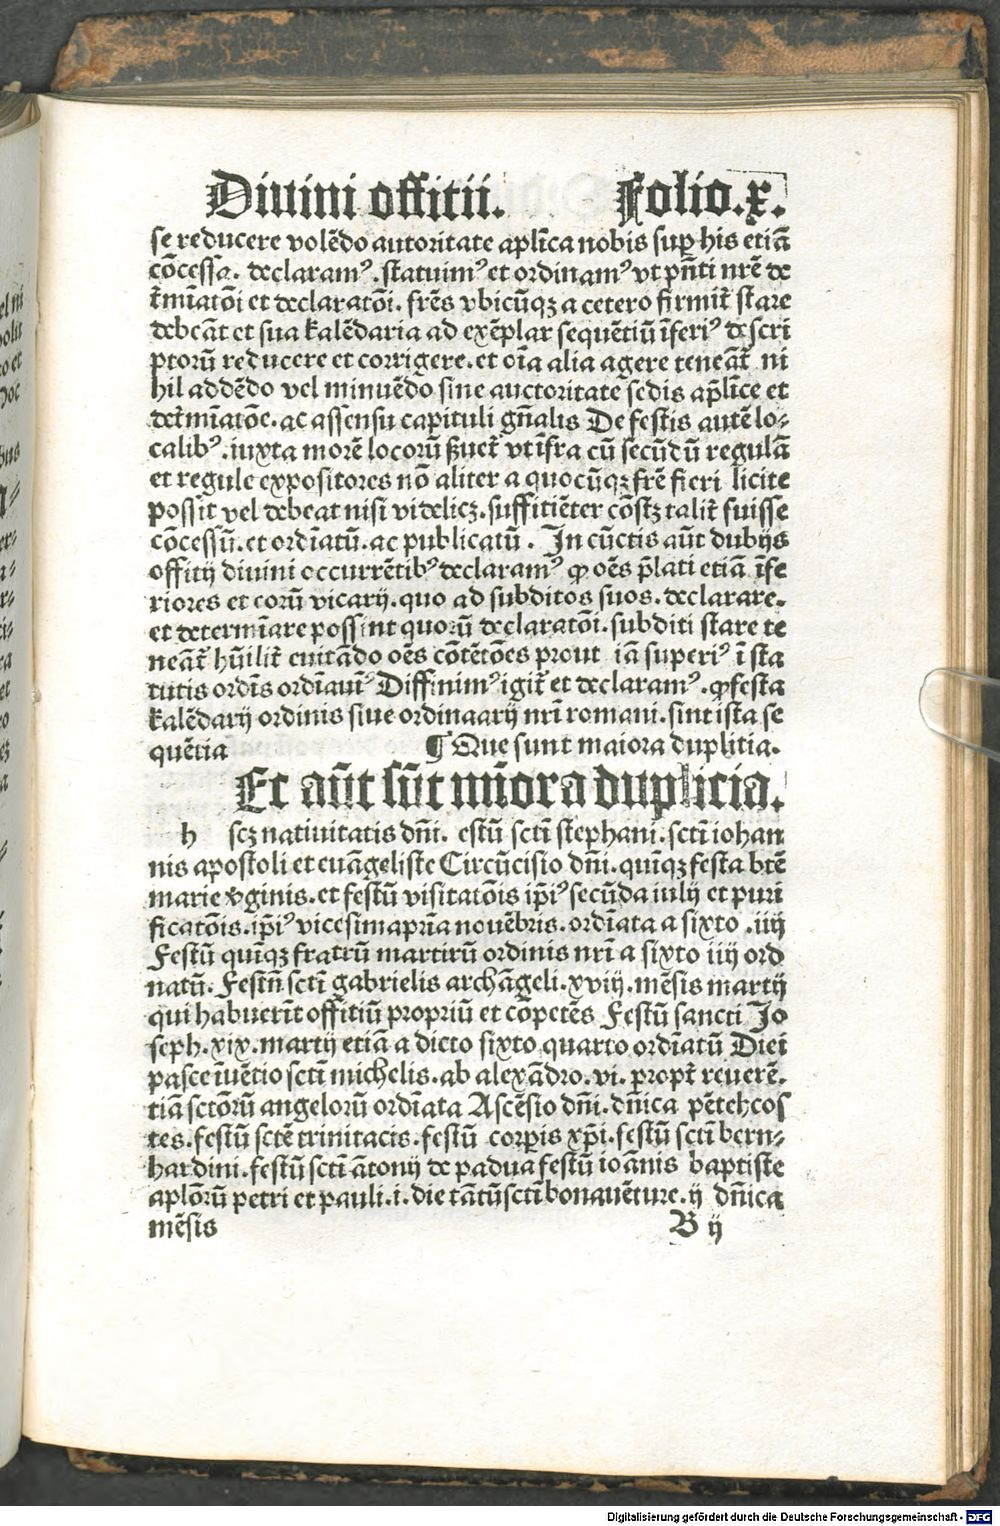 Diuini offitii. Folio.x.
se reducere volēdo autoritate aplīca nobis suꝑ his etiā
cōcessa. declaramꝰ. statuimꝰ et ordinamꝰ vt pn̄ti nrē de
t̄mīatōi et declaratōi. frēs vbicūqꝫ a cetero firmit̄ stare
debeāt et sua kalēdaria ad exēplar sequētiū īferiꝰ descri
ptorū reducere et corrigere. et oīa alia agere teneāt̄ ni
hil addēdo vel minuēdo sine auctoritate sedis ap̄līce et
det̄mīatōe. ac assensu capituli gn̄alis De festis autē lo-
calibꝰ. iuxta morē locorū ẜuet̄ vt īfra cū secūdū regulā
et regule expositores nō aliter a quocūqꝫ frē fieri licite
possit vel debeat nisi videlicꝫ. suffitiēter cōstꝫ talit̄ fuisse
cōcessū. et ordīatū. ac publicatū. In cūctis aūt dubijs
offitij diuini occurrētibꝰ declaramꝰ ꝙ oēs p̄lati etiā īfe
riores et eorū vicarij. quo ad subditos suos. declarare.
et determīare possint quorū declaratōi. subditi stare te
neāt̄ hūilit̄ euitādo oēs cōtētōes prout iā superiꝰ ī sta
tutis ordīs ordīauīꝰ Diffinimꝰ igit̄ et declaramꝰ. ꝙ festa
kalēdarij ordinis siue ordinaarij nrī romani. sint ista se
quētia ¶ Que sunt maiora duplitia.
Ec aūt sūt mīora duplicia.
h scꝫ natiuitatis dn̄i. estū sctī stephani. sctī iohan
nis apostoli et euāgeliste Circūcisio dn̄i. quīqꝫ festa btē
marie vginis. et festū visitatōis ip̄iꝰ secūda iulij et puri
ficatōis. ip̄iꝰ vicesima prīa nouēbris. ordīata a sixto .iiij
Festū quīqꝫ fratrū martirū ordinis nrī a sixto iiij ord
natū. Festū sctī gabrielis archāgeli. xviij. mēsis martij
qui habuerīt offitiū propriū et cōpetēs Festū sancti Jo
seph. xix. martij etiā a dicto sixto quarto ordīatū Diei
pasce īuētio sctī michelis. ab alexādro. vi. propt̄ reuerē.
tiā sctōrū angelorū ordīata Ascēsio dn̄i. dn̄ica pētehcos
tes. festū sctē trinitacis. festū corꝑis xp̄i. festū sctī bern-
hardini. festū sctī ātonij de padua festū ioānis baptiste
aplōrū petri et pauli. i. die tātū sctī bonauēture. ij dn̄ica
mēsis B ij
Digitalisierung gefördert durch die Deutsche Forschungsgemeinschaft - DFG